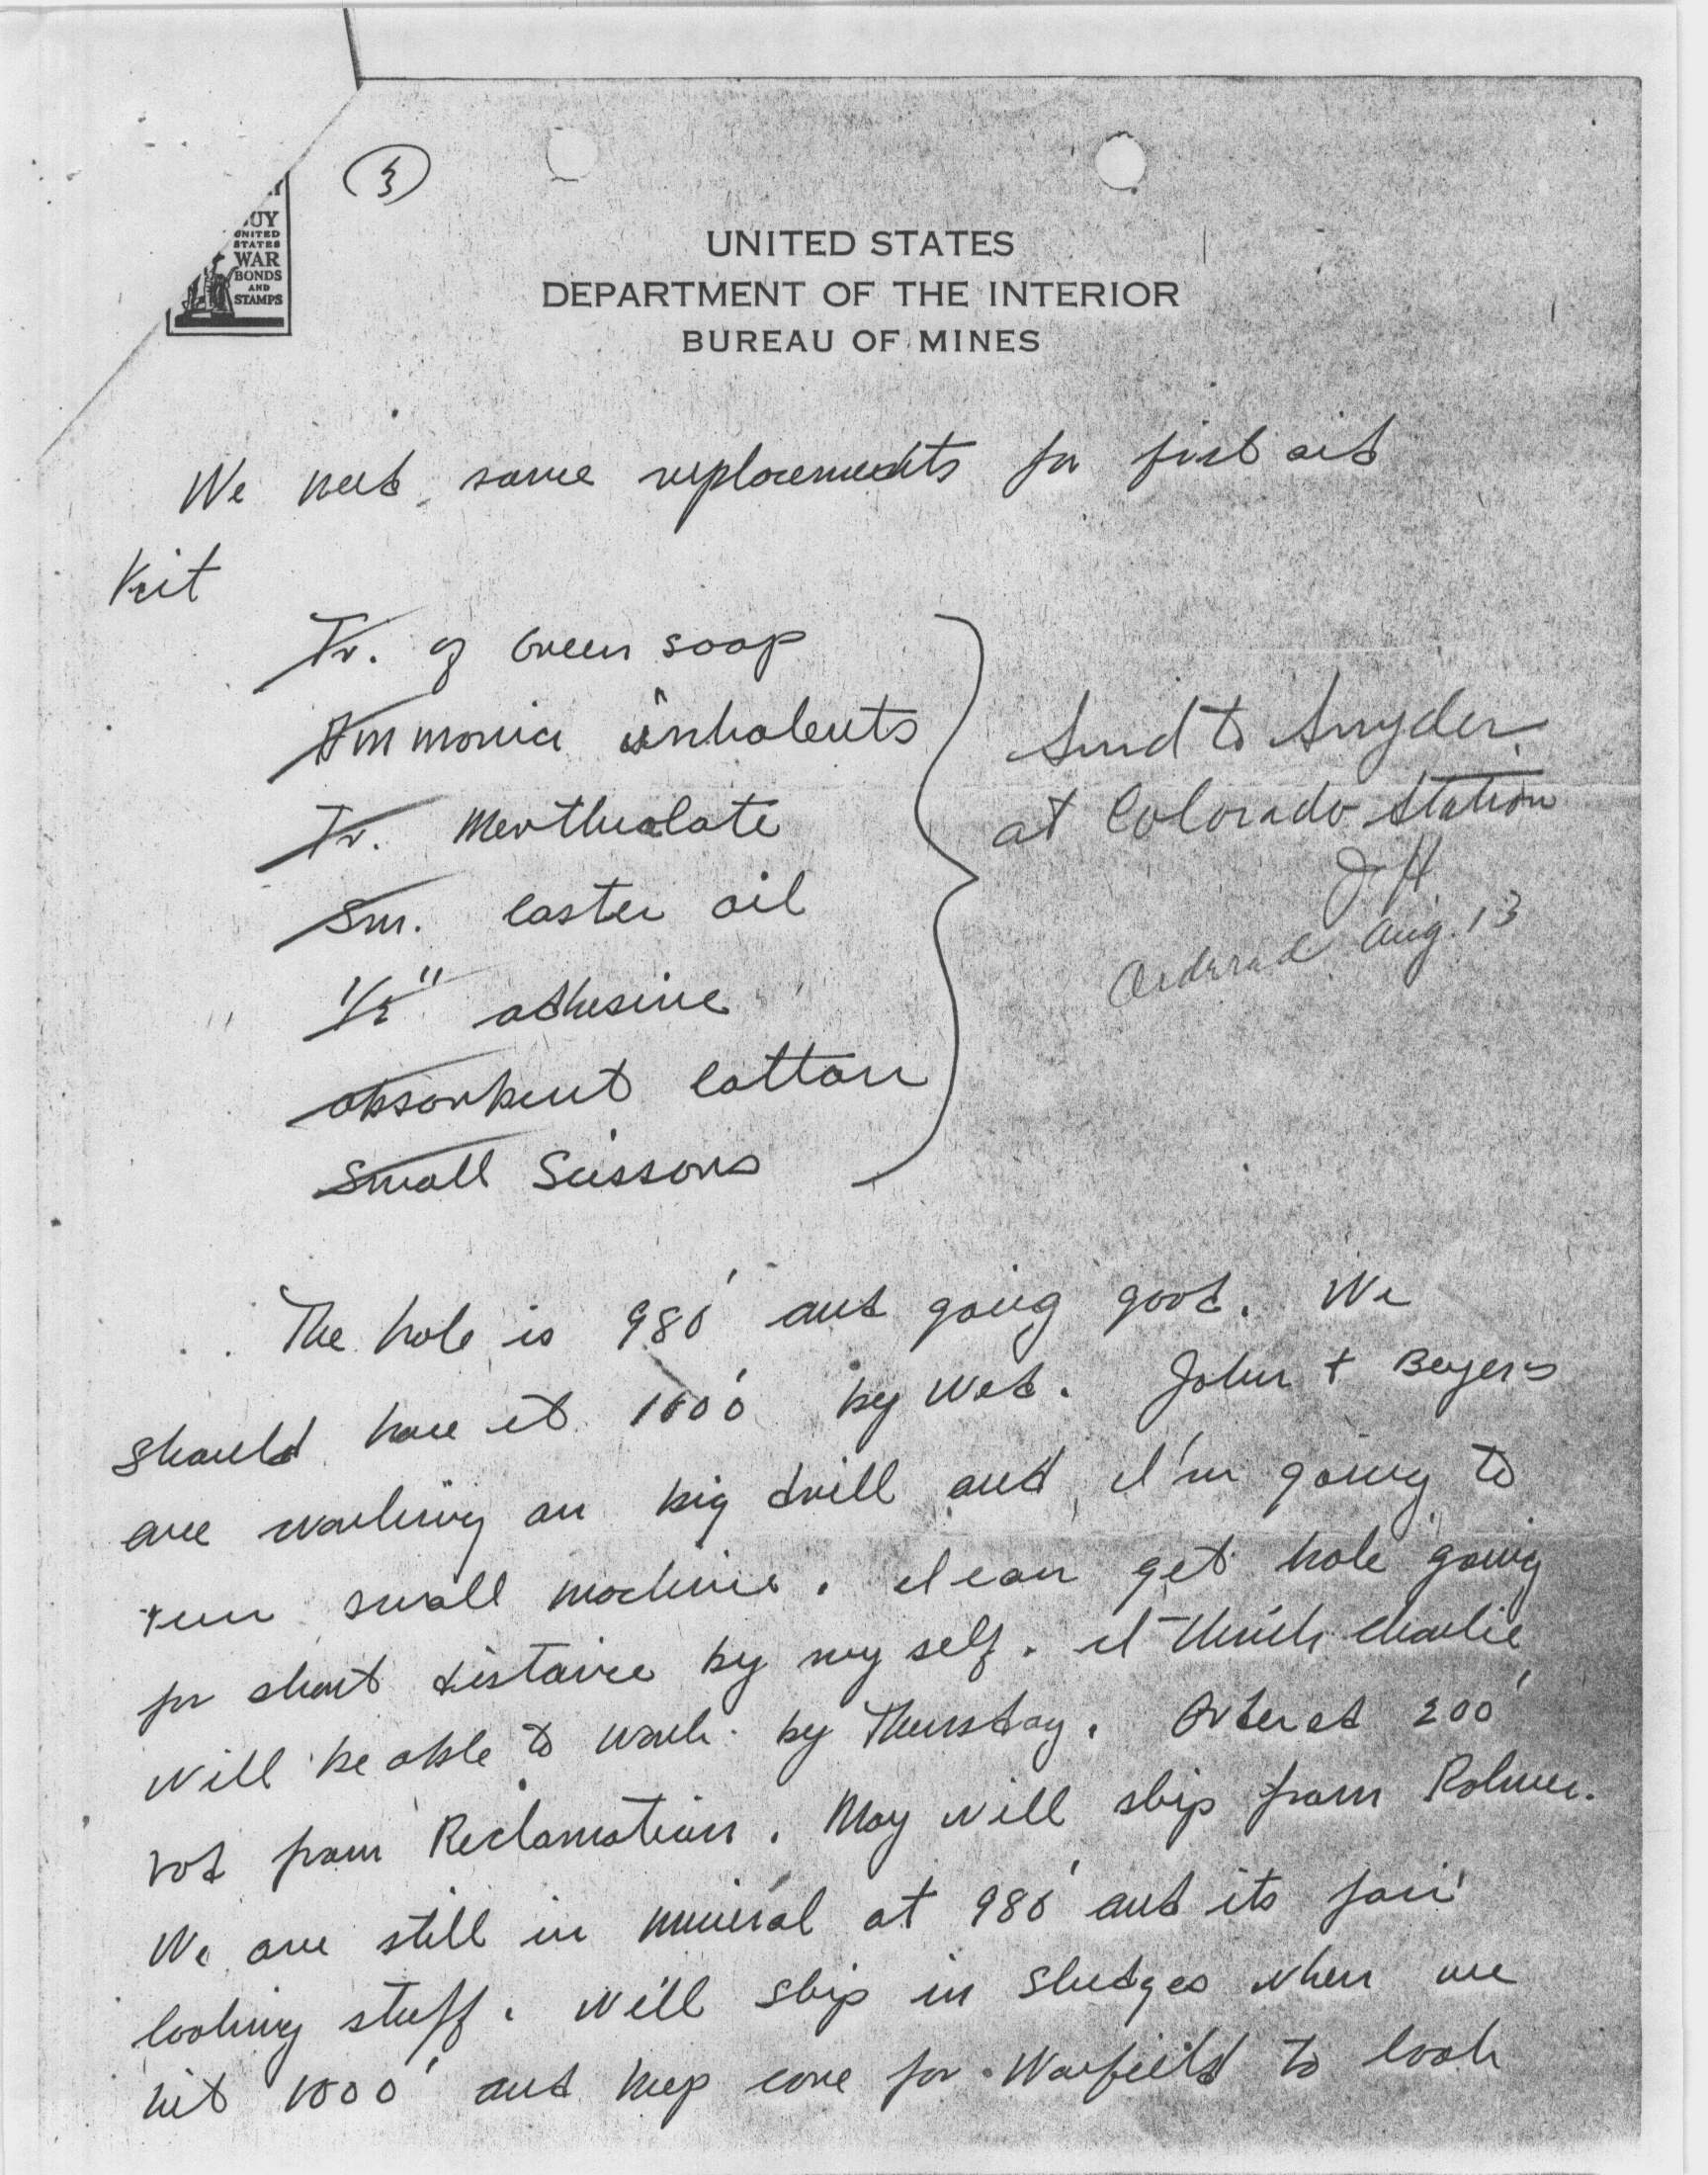 3
UY
UNITED
STATES
WAR
BONDS
AND
STAMPS
UNITED STATES
DEPARTMENT OF THE INTERIOR
BUREAU OF MINES
We need some replacements for first aid
Kit
Tr. of Green soap
Ammonia inhalents
Tr. Merthialate
Sm. Caster oil
1/2" adhesive
absorbent Cotton
Small Scissors
Send to Snyder
at Colorado Station
JH
Ordered Aug. 13
The hole is 980' and going good. We
should have it 1000' by Wed. John + Beyers
are working on big drill and I'm going to
run small machine. I can get hole going
for short distance by my self. I think Charlie
will be able to work by Thursday. Ordered 200'
rod from Reclamation. May will ship from
We are still in mineral at 980' and its fair
looking stuff. Will ship in Sludges when we
hit 1000' and keep core for Warfield to look